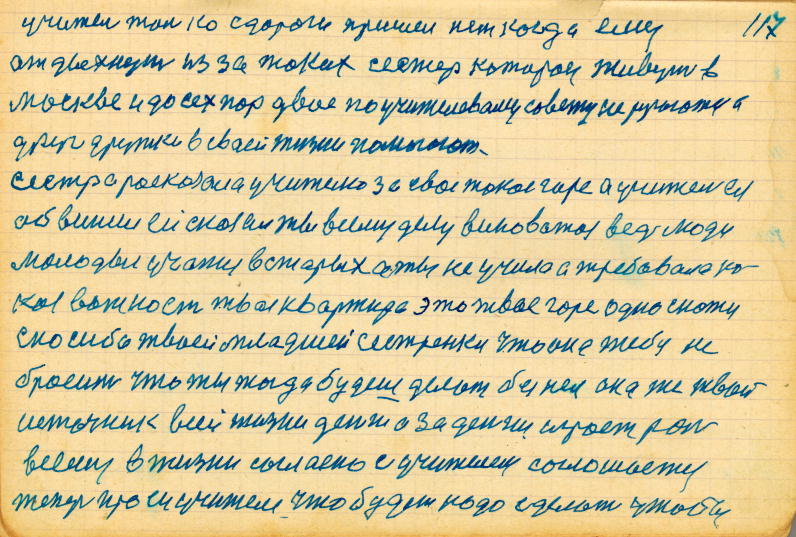 117
учител только сдороги пришел нет когда ему
отдыхнут из за таких сестер которои живут в
москве идосех пор двое по учителевому совету не ругаются а
друг дружки в своей жизни помогают.
сестра росказала учителю за свое такое горе а учител ей
обвинил ей сказал ты всему делу виноватая ведь люди
молодыи учатся в старых а ты не учила а требовала ка-
кая важност твоя квартира это твое горе одно скажи
спосиба твоей младшей сестренки что она тебя не
бросит что ты тогда будеш делат без нея она же твой
источник всей жизни денги а за денги играет рол
всему в жизни согласно с учителем соглашается
тепер проси учителя что будет надо сделат чтобы